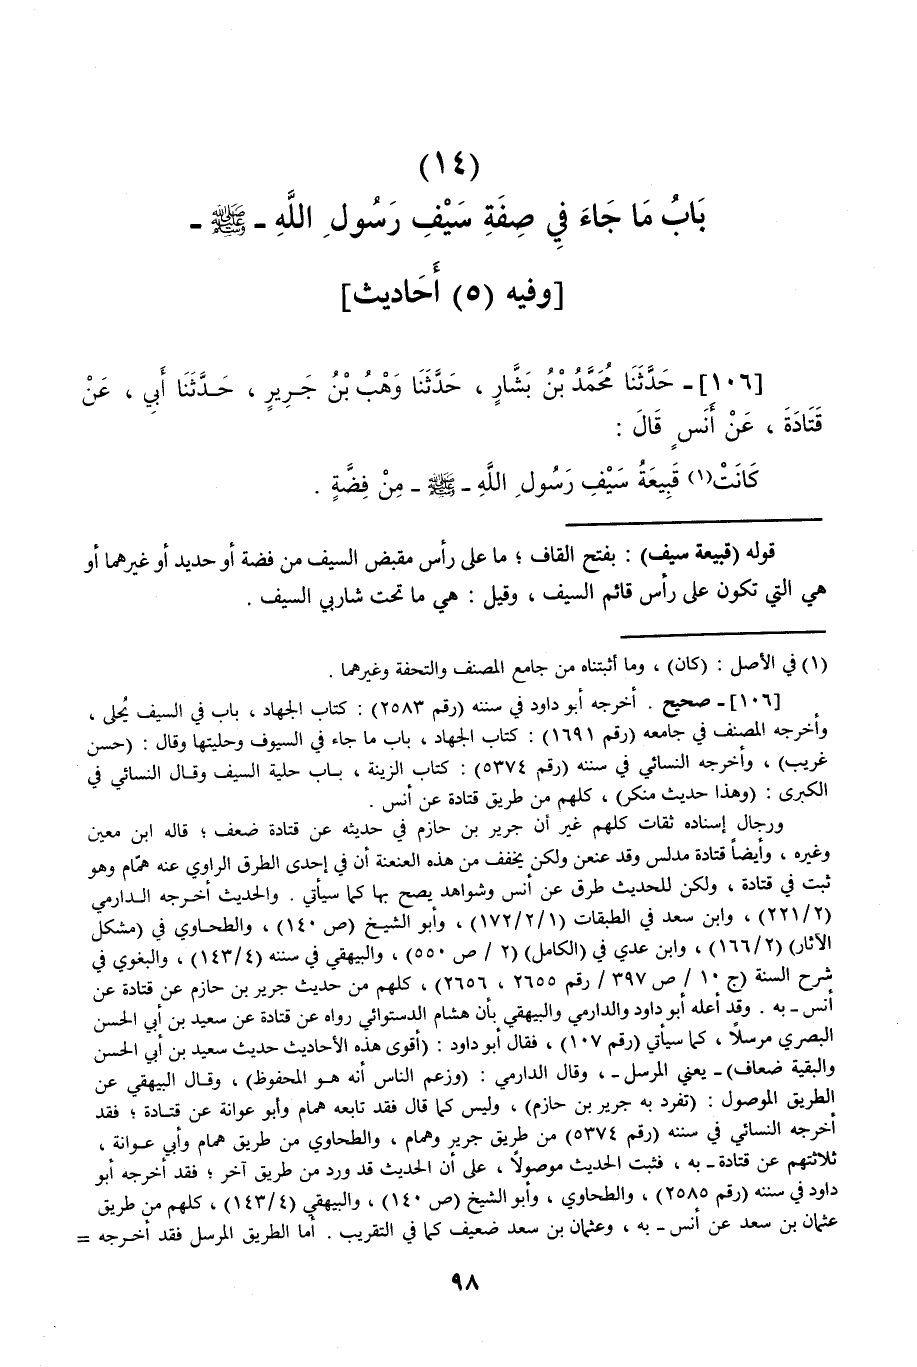 (١٤)
بَابُ مَا جَاءَ فِي صِفَةِ سَيْفِ رَسُولِ اللَّهِ ـ ﷺ ـ
[وفيه (٥) أَحَاديث]
[١٠٦]ـ حَدَّثَنَا مُحَمَّدُ بْنُ بَشَّارٍ ، حَدَّثَنَا وَهْبُ بْنُ جَرِيرٍ ، حَدَّثَنَا أَبِي ، عَنْ
قَتَادَةَ ، عَنْ أَنَسٍ قَالَ :
كَانَتْ(١) قَبِيعَةُ سَيْفِ رَسُولِ اللَّهِ ـ ﷺ ـ مِنْ فِضَّةٍ .
قوله (قبيعة سيف) : بفتح القاف ؛ ما على رأس مقبض السيف من فضة أو حديد أو غيرهما أو
هي التي تكون على رأس قائم السيف ، وقيل : هي ما تحت شاربي السيف .
(١) في الأصل : (كان) ، وما أثبتناه من جامع المصنف والتحفة وغيرهما .
[١٠٦]ـ صحيح . أخرجه أبو داود في سننه (رقم ٢٥٨٣) : كتاب الجهاد ، باب في السيف يُحلى ،
وأخرجه المصنف في جامعه (رقم ١٦٩١) : كتاب الجهاد ، باب ما جاء في السيوف وحليتها وقال : (حسن
غريب) ، وأخرجه النسائي في سننه (رقم ٥٣٧٤) : كتاب الزينة ، باب حلية السيف وقال النسائي في
الكبرى : (وهذا حديث منكر) ، كلهم من طريق قتادة عن أنس .
ورجال إسناده ثقات كلهم غير أن جرير بن حازم في حديثه عن قتادة ضعف ؛ قاله ابن معين
وغيره ، وأيضاً قتادة مدلس وقد عنعن ولكن يخفف من هذه العنعنة أن في إحدى الطرق الراوي عنه همّام وهو
ثبت في قتادة ، ولكن للحديث طرق عن أنس وشواهد يصح بها كما سيأتي . والحديث أخرجه الدارمي
(٢٢١/٢) ، وابن سعد في الطبقات (١٧٢/٢/١) ، وأبو الشيخ (ص ١٤٠) ، والطحاوي في (مشكل
الآثار) (١٦٦/٢) ، وابن عدي في (الكامل) (٢ / ص ٥٥٠) ، والبيهقي في سننه (١٤٣/٤) ، والبغوي في
شرح السنة (ج ١٠ / ص ٣٩٧ / رقم ٢٦٥٥ ، ٢٦٥٦) ، كلهم من حديث جرير بن حازم عن قتادة عن
أنس ـ به . وقد أعله أبو داود والدارمي والبيهقي بأن هشام الدستوائي رواه عن قتادة عن سعيد بن أبي الحسن
البصري مرسلاً ، كما سيأتي (رقم ١٠٧) ، فقال أبو داود : (أقوى هذه الأحاديث حديث سعيد بن أبي الحسن
والبقية ضعاف) ـ يعني المرسل ـ ، وقال الدارمي : (وزعم الناس أنه هو المحفوظ) ، وقال البيهقي عن
الطريق الموصول : (تفرد به جرير بن حازم) ، وليس كما قال فقد تابعه همام وأبو عوانة عن قتادة ؛ فقد
أخرجه النسائي في سننه (رقم ٥٣٧٤) من طريق جرير وهمام ، والطحاوي من طريق همام وأبي عوانة ،
ثلاثتهم عن قتادة ـ به ، فثبت الحديث موصولاً ، على أن الحديث قد ورد من طريق آخر ؛ فقد أخرجه أبو
داود في سننه (رقم ٢٥٨٥) ، والطحاوي ، وأبو الشيخ (ص ١٤٠) ، والبيهقي (١٤٣/٤) ، كلهم من طريق
عثمان بن سعد عن أنس ـ به ، وعثمان بن سعد ضعيف كما في التقريب . أما الطريق المرسل فقد أخرجه =
٩٨